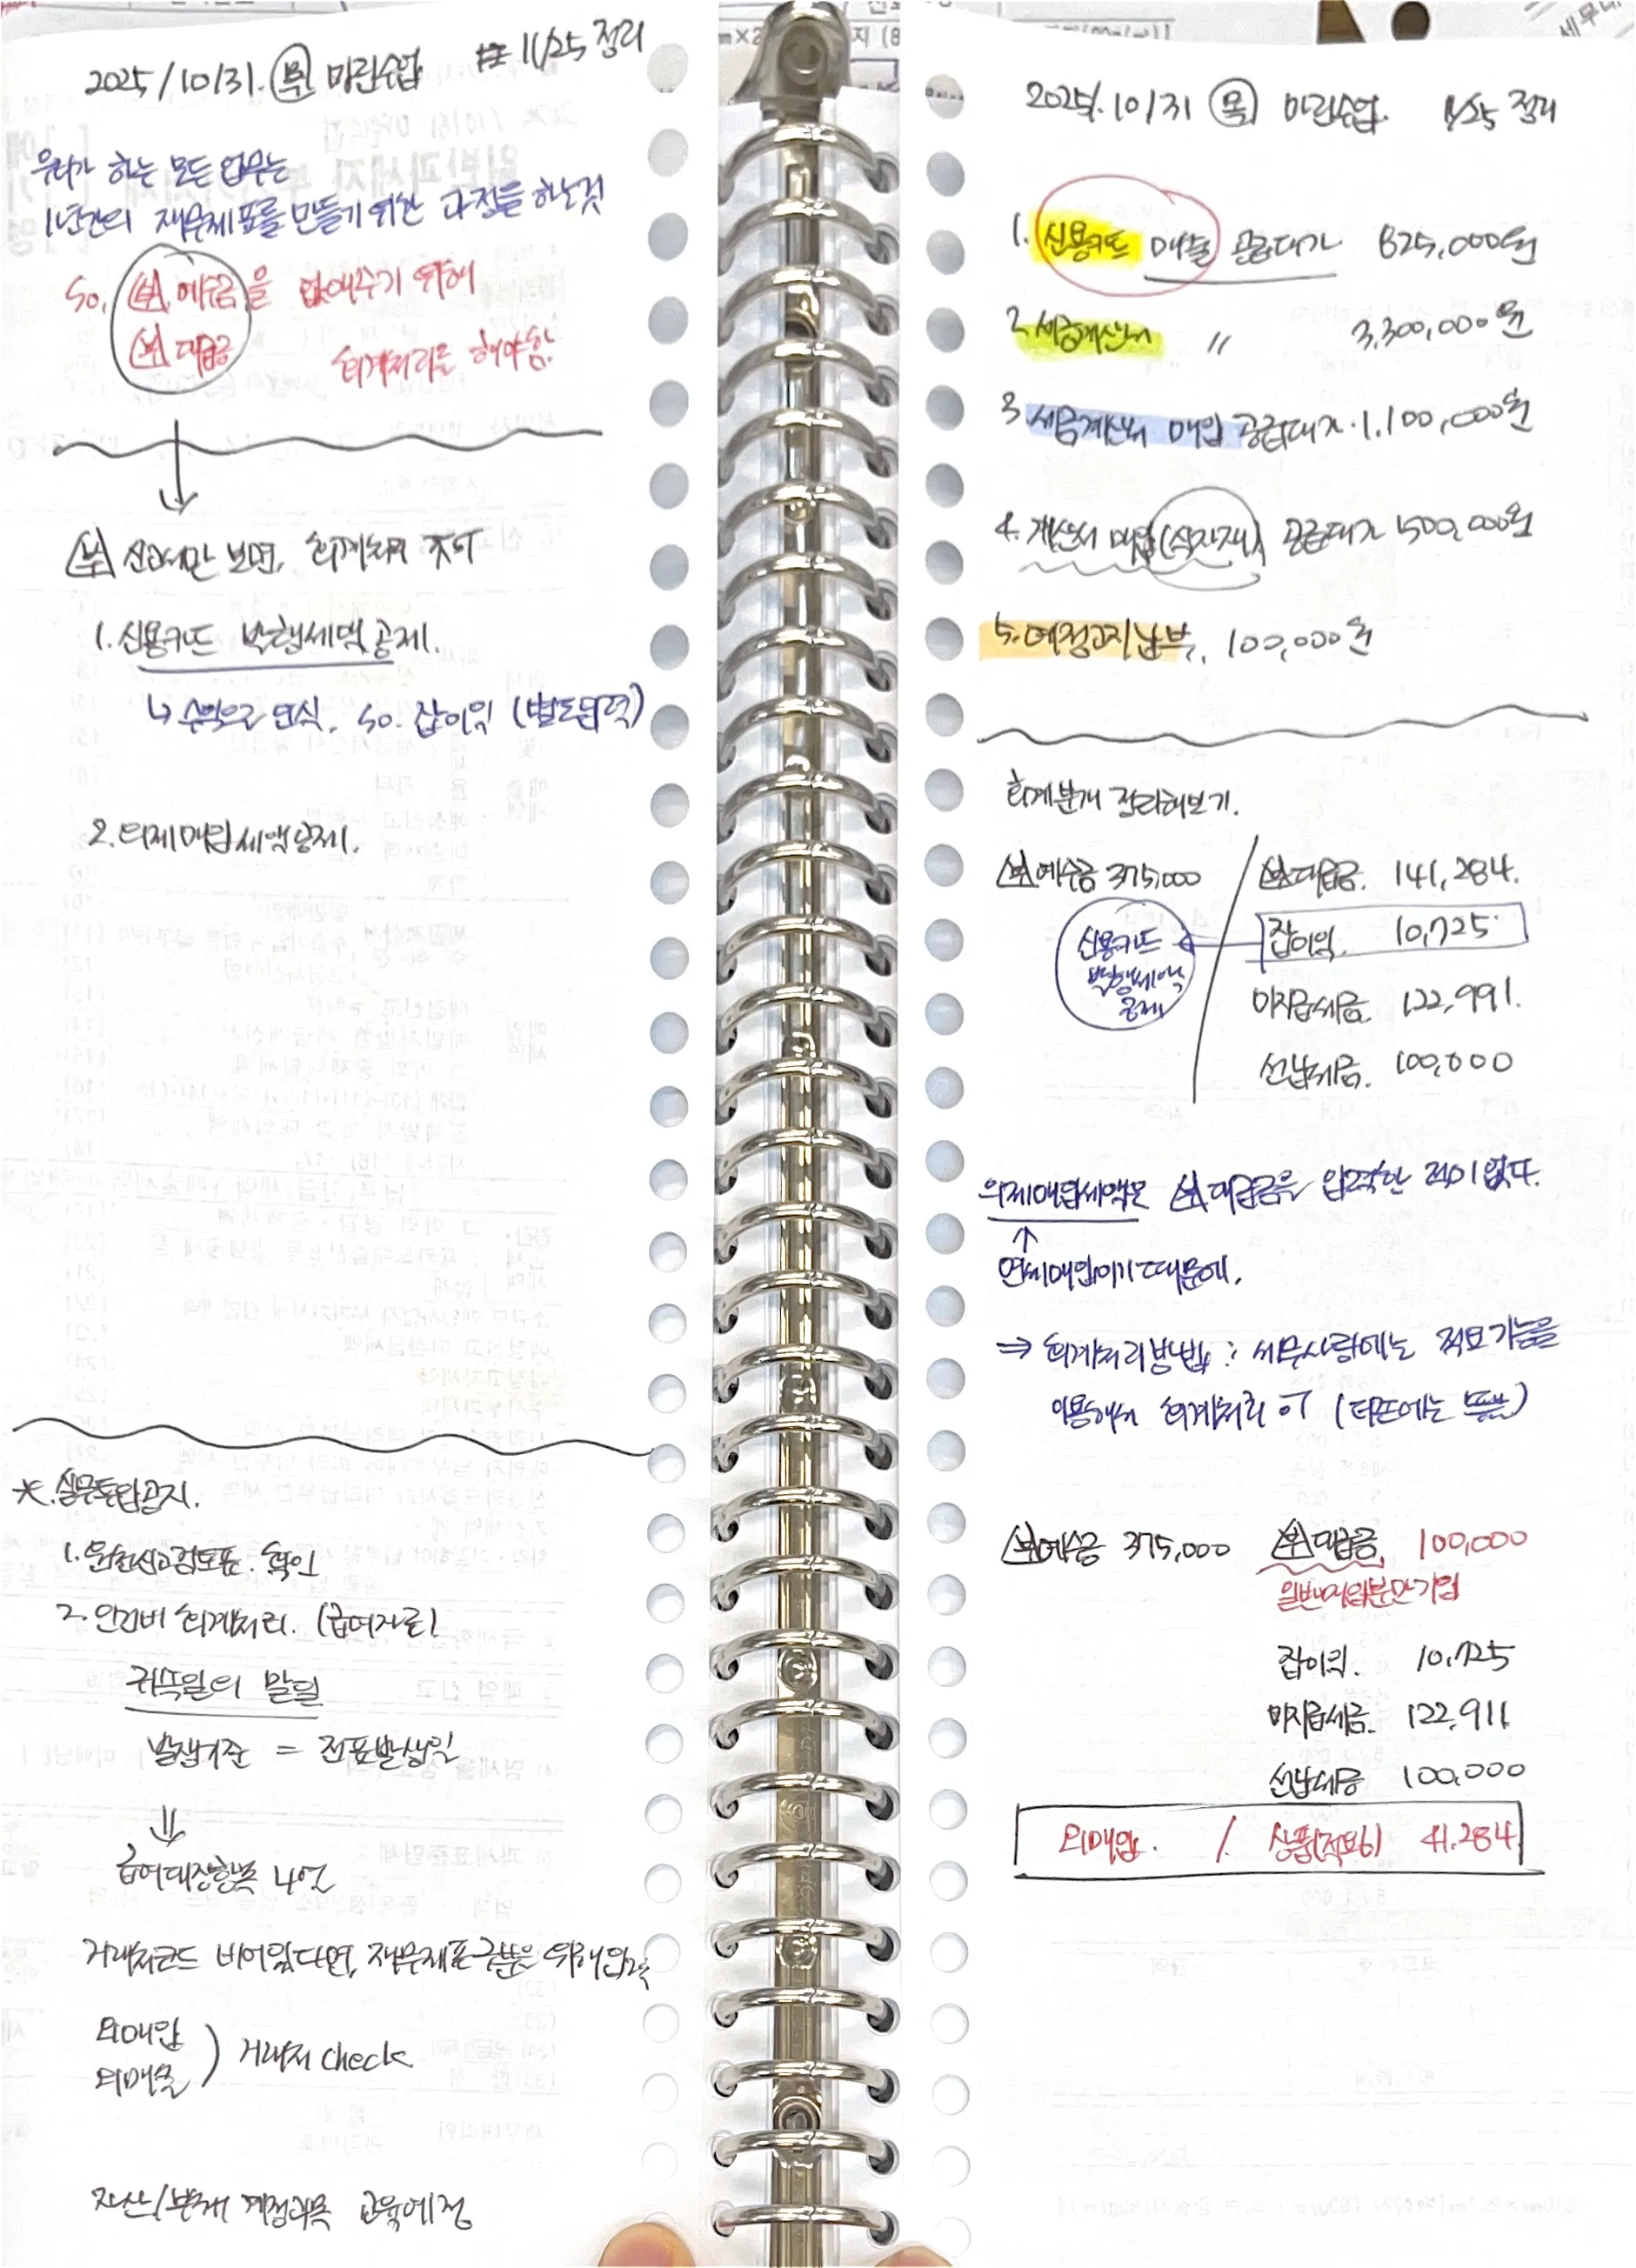 2025/10/31. 목 밀린수업 # 11/25 정리
우리가 하는 모든 업무는
1년간의 재무제표를 만들기 위한 과정을 하는것
So, 부 예수금을 없애주기 위해
부 대급금 회계처리를 해야함.
부 신고서만 보면, 회계처리 가능
1. 신용카드 발행세액공제.
↳ 수익으로 인식. so. 잡이익 (별도입력)
2. 의제매입세액공제.
*. 실무톡방공지.
1. 원천신고검토표. 확인
2. 인건비 회계처리. (급여자료)
귀속월의 말일
발생기준 = 전표발생일
⇓
급여대장항목
거래처코드 비어있다면, 재무제표 구분을 위해 입력
외매입
외매출 ) 거래처 check
자산/부채 계정과목 교육예정
2025/.10/31 목 밀린수업. 11/25 정리
1. 신용카드 매출 공급대가 825,000원
2. 세금계산서 〃 3,300,000원
3. 세금계산서 매입 공급대가. 1,100,000원
4. 계산서 매입(식자재) 공급대가 1,500,000원
5. 예정고지납부. 100,000원
회계분개 정리해보기.
부 예수금 375,000 / 부 대급금. 141,284.
신용카드 발행세액 공제 잡이익. 10,725
미지급세금. 122,991.
선납세금. 100,000
의제매입세액은 부 대급금을 입력한 적이 없다.
↑
면세매입이기 때문에.
⇒ 회계처리방법 : 세무사랑에는 적요기능을
이용해서 회계처리 可 (더존에는 )
부 예수금 375,000 부 대급금. 100,000
일반매입분만기입
잡이익. 10,725
미지급세금. 122,911
선납세금 100,000
외매입. / 상품(적요6) 41,284